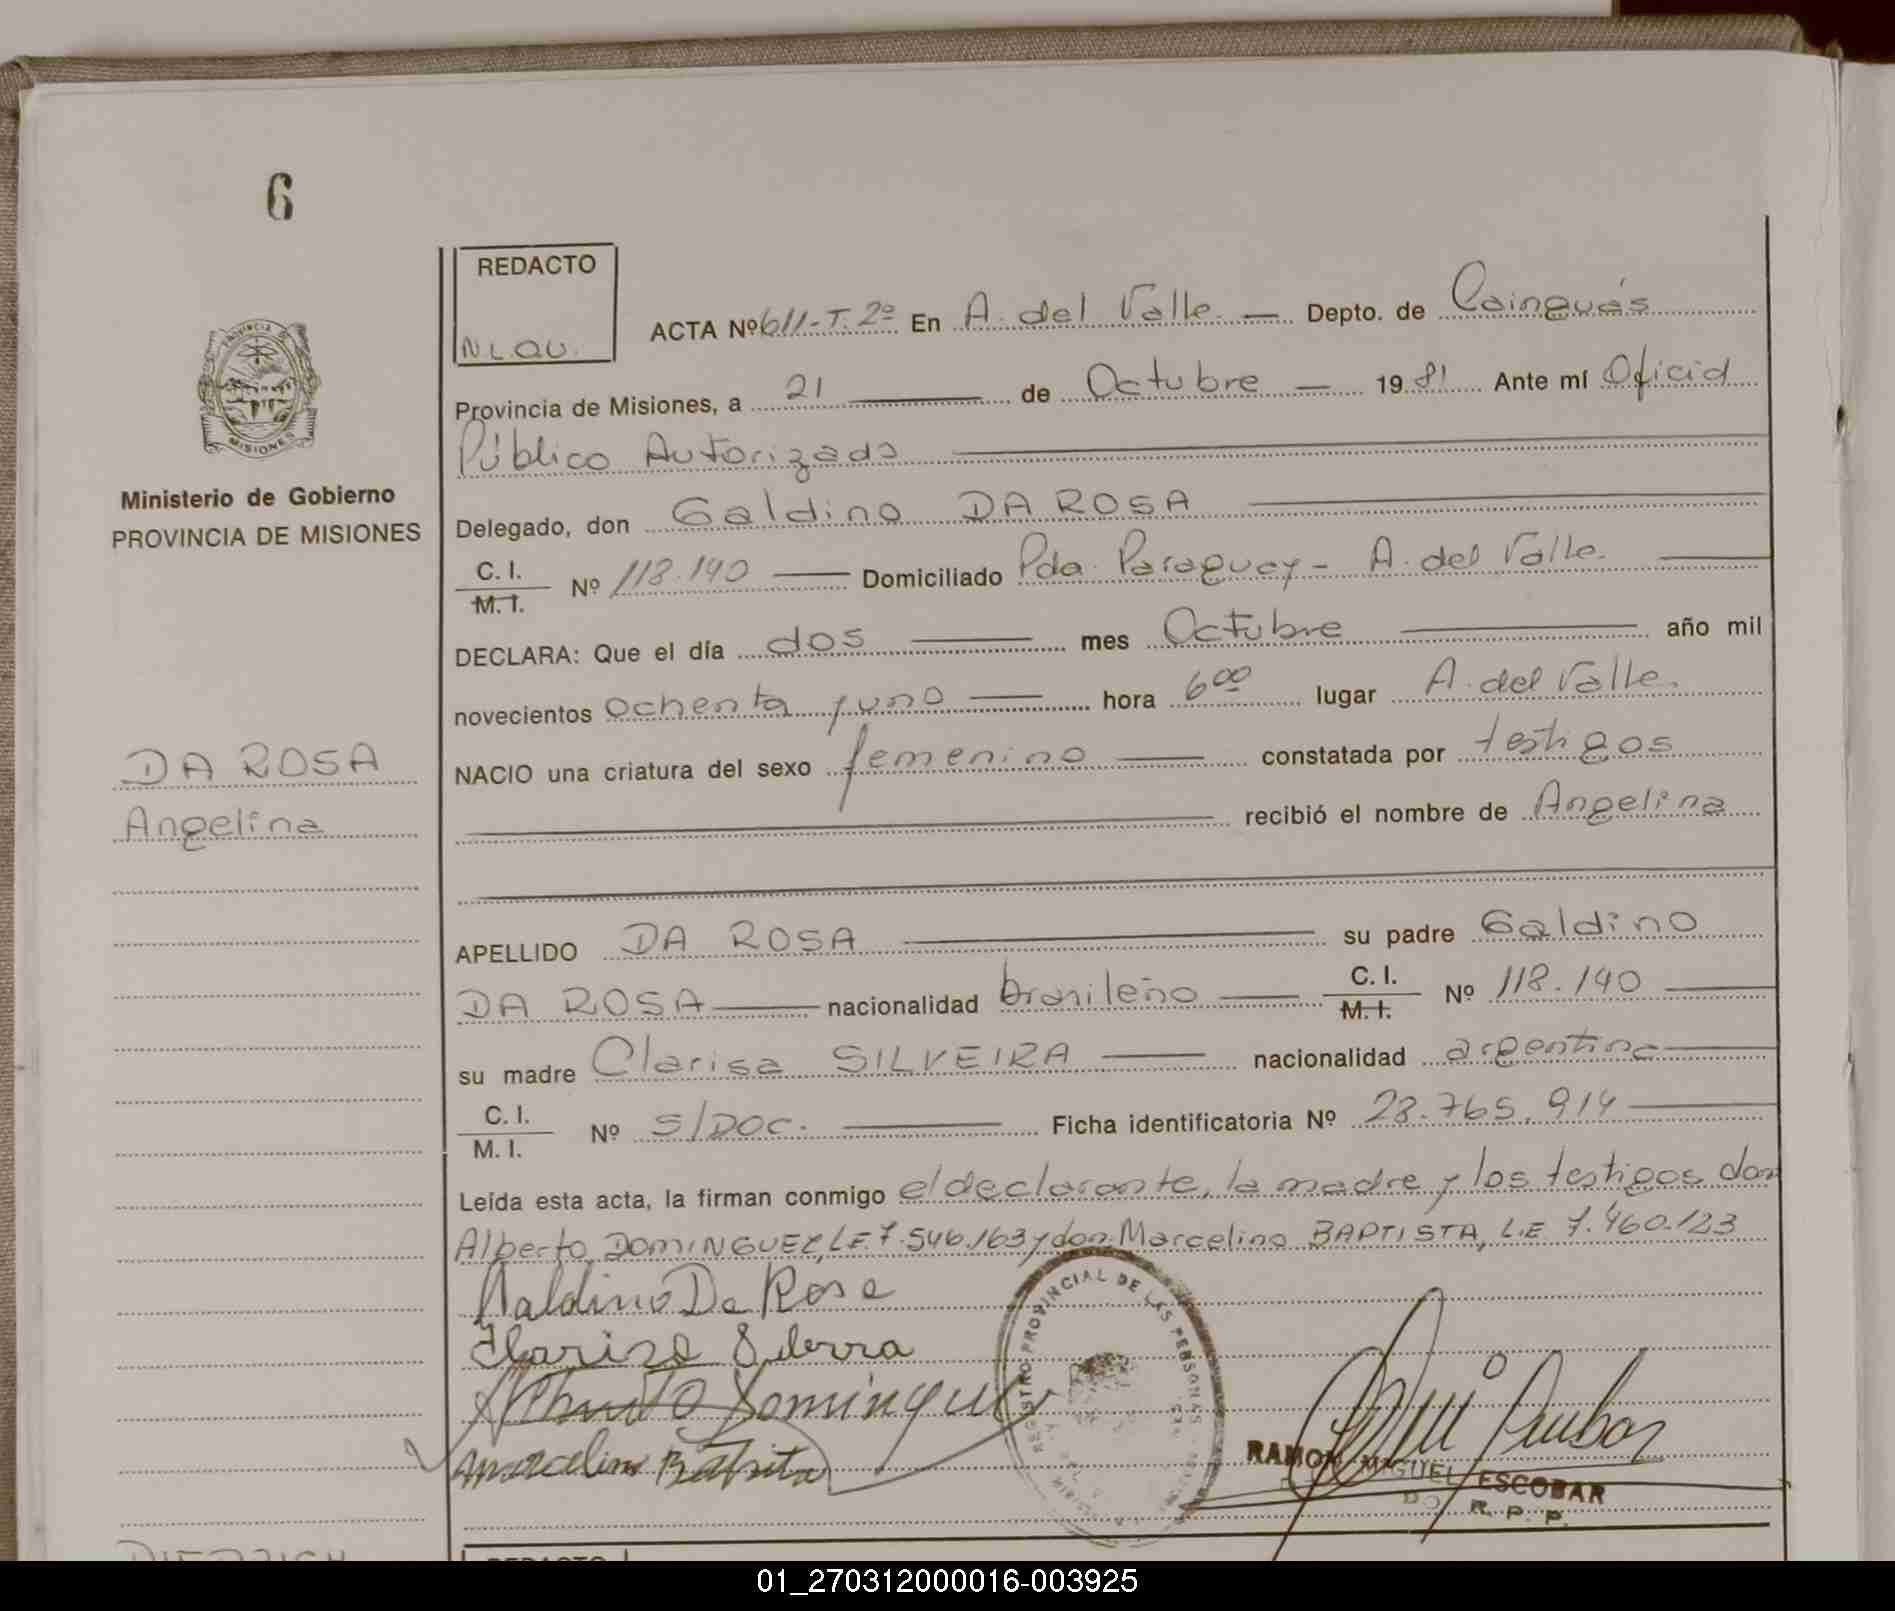 6
REDACTO
N L. QU.
ACTA Nº 611-T. 2º En A. del Valle — Depto. de Cainguás
Provincia de Misiones, a 21 de Octubre — 1981 Ante mí Oficial
Público Autorizado
PROVINCIA DE
MISIONES
Ministerio de Gobierno
PROVINCIA DE MISIONES
Delegado, don Galdino DA ROSA
C. I.
M. I. Nº 118.140 — Domiciliado Pda. Paraguay - A. del Valle.
DECLARA: Que el día dos — mes Octubre — año mil
novecientos ochenta y uno — hora 6 00 lugar A. del Valle.
DA ROSA
Angelina
NACIO una criatura del sexo femenino — constatada por testigos
recibió el nombre de Angelina
APELLIDO DA ROSA — su padre Galdino
DA ROSA — nacionalidad brasileño — C. I. M. I. Nº 118.140 —
su madre Clarisa SILVEIRA — nacionalidad argentina —
C. I.
M. I. Nº S/DOC. — Ficha identificatoria Nº 28.765.914 —
Leída esta acta, la firman conmigo el declarante, la madre y los testigos don
Alberto DOMINGUEZ, L.E. 7.546.163 y don Marcelino BAPTISTA, L.E. 7.460.123
Galdino Da Rosa
Clarisa
Dominguez
Marcelino Batista
REGISTRO PROVINCIAL DE LAS PERSONAS
RAMON MIGUEL ESCOBAR
R. P. P.
REDACTO
01_270312000016-003925